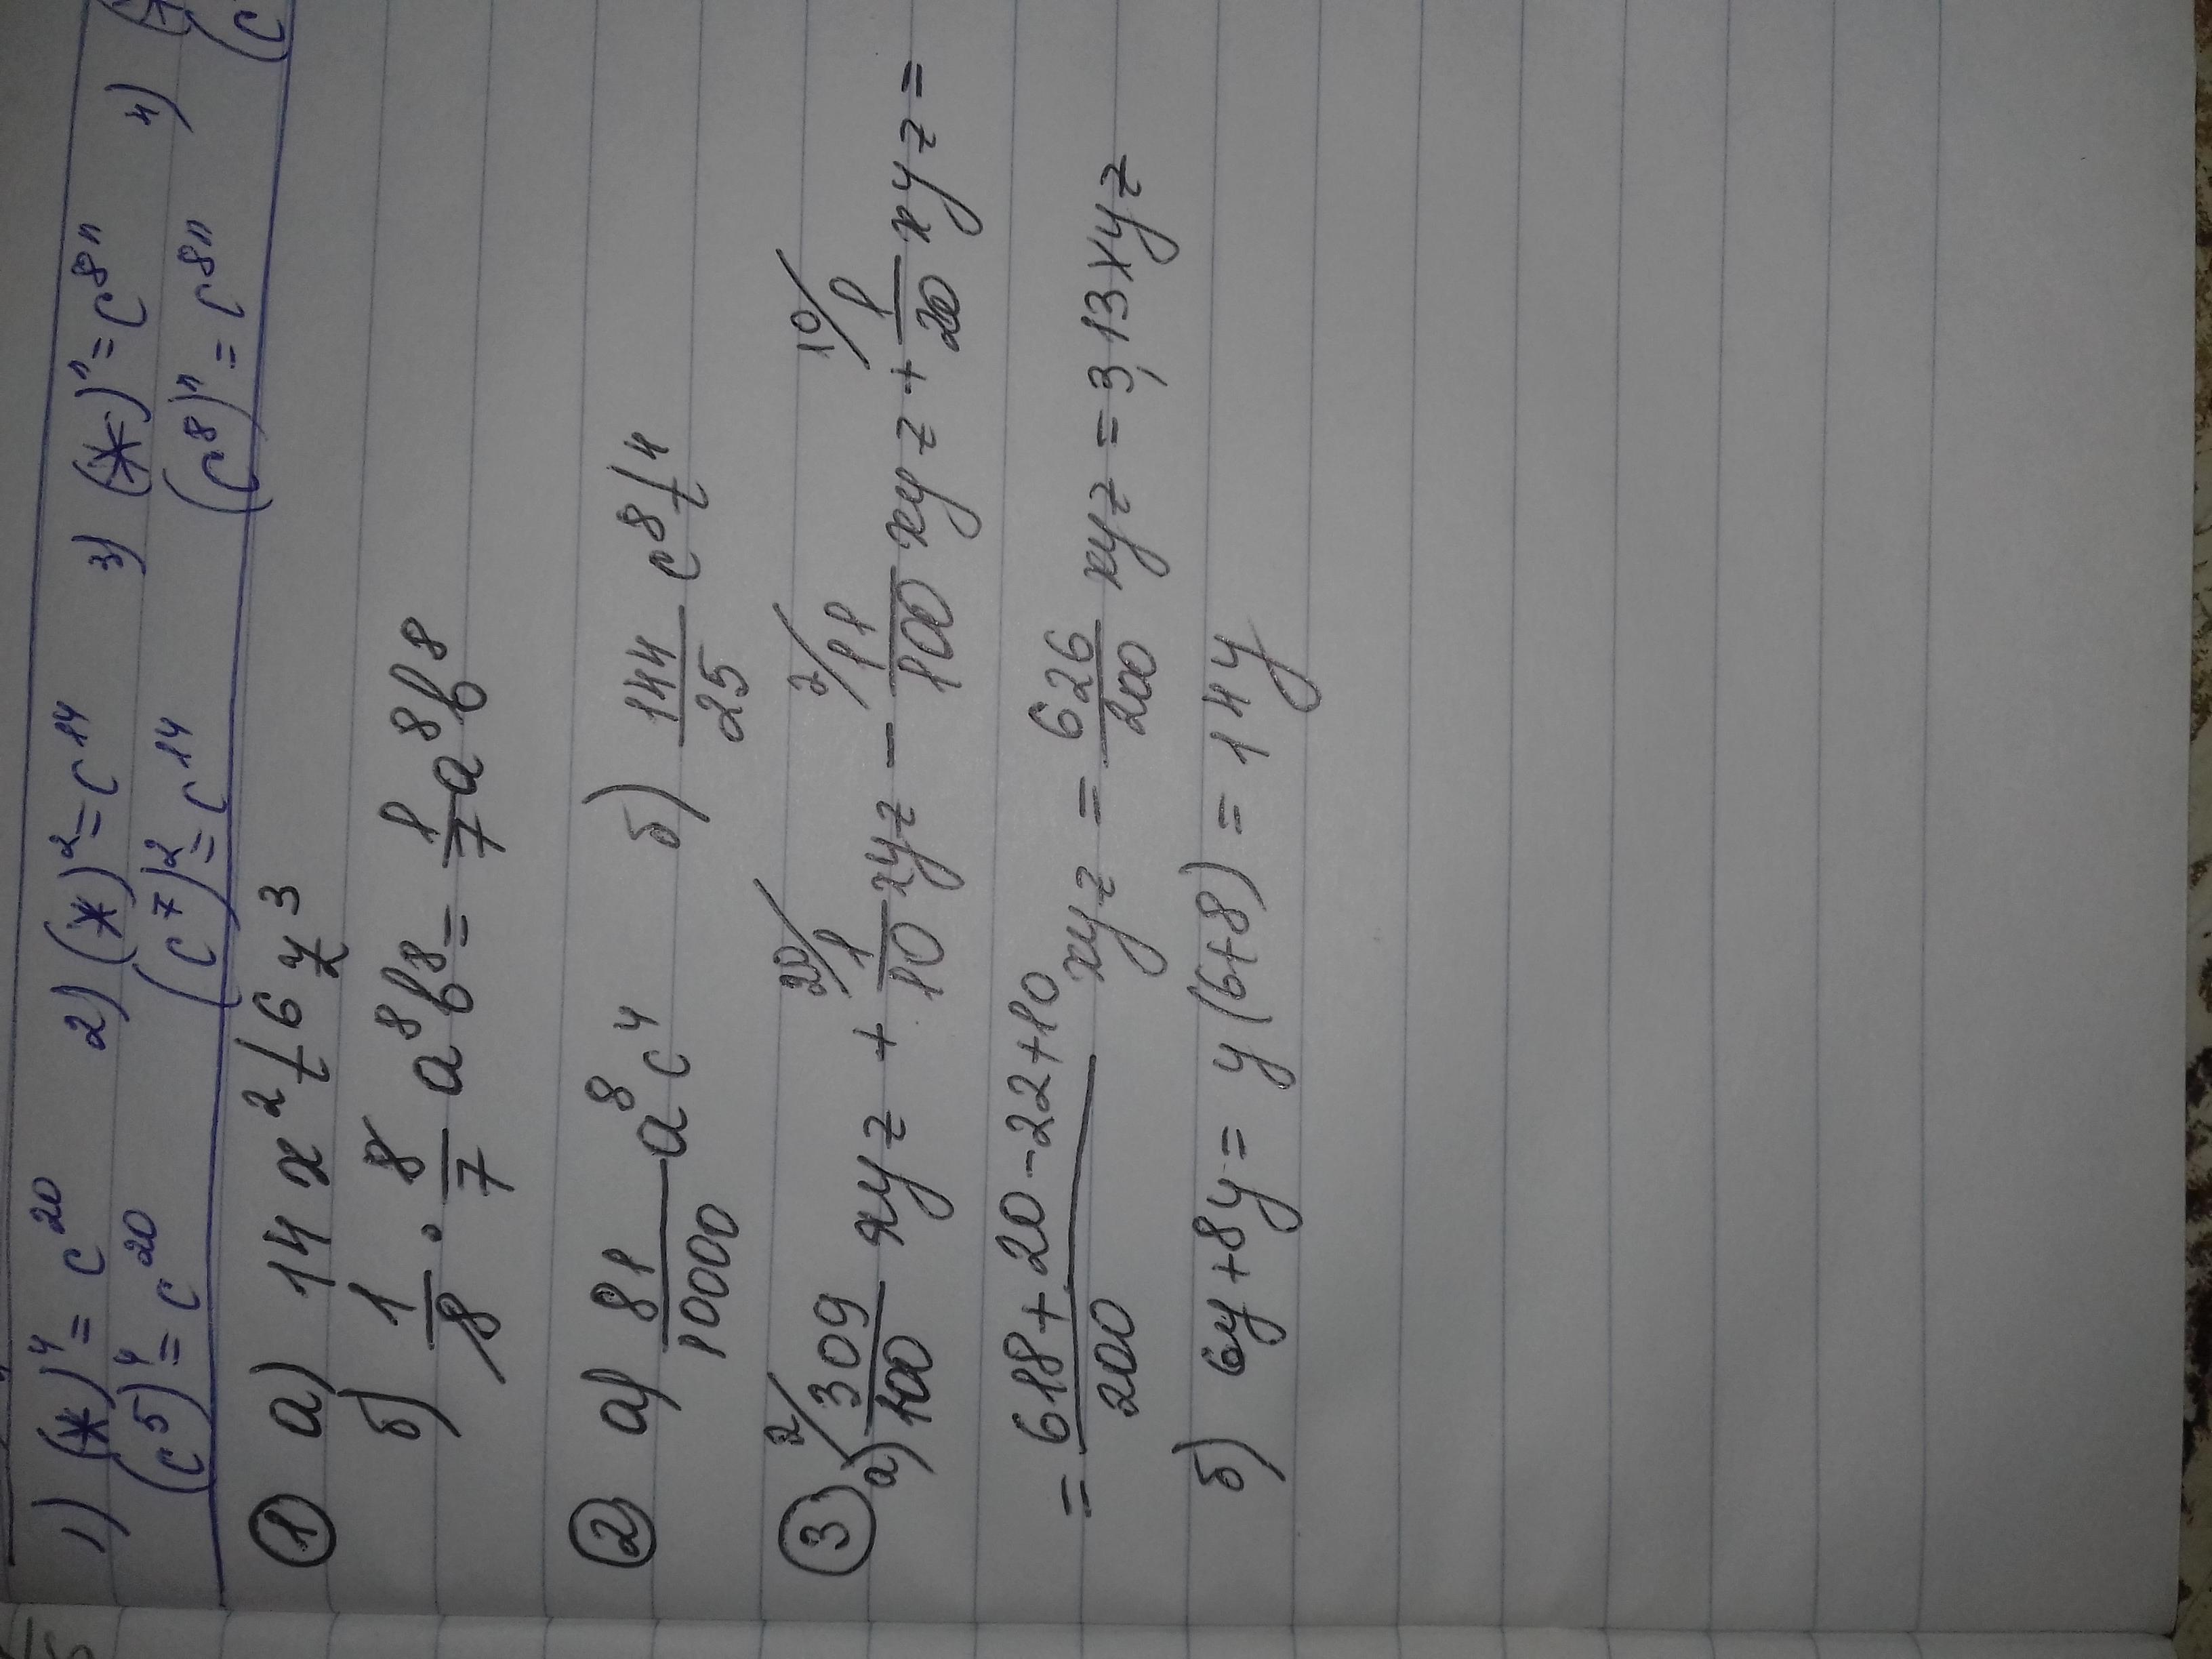 1) (*)⁴ = c²⁰ 2) (*)² = c¹⁴ 3) (*)ⁿ = c⁸ⁿ 4)
(c⁵)⁴ = c²⁰ (c⁷)² = c¹⁴ (c⁸)ⁿ = c⁸ⁿ (c
① а) 14 x² t⁶ z³
б) 1/8 · 8/7 a⁸b⁸ = 1/7 a⁸b⁸
② а) 81/10000 a⁸c⁴ б) 144/25 c⁸t⁴
③ а) ²⁄ 309/100 xyz + ²⁰⁄ 1/10 xyz − ²⁄ 11/100 xyz + ¹⁰⁄ 1/20 xyz =
= (618+20−22+10)/200 xyz = 626/200 xyz = 3,13xyz
б) 6y+8y = y(6+8) = 14y